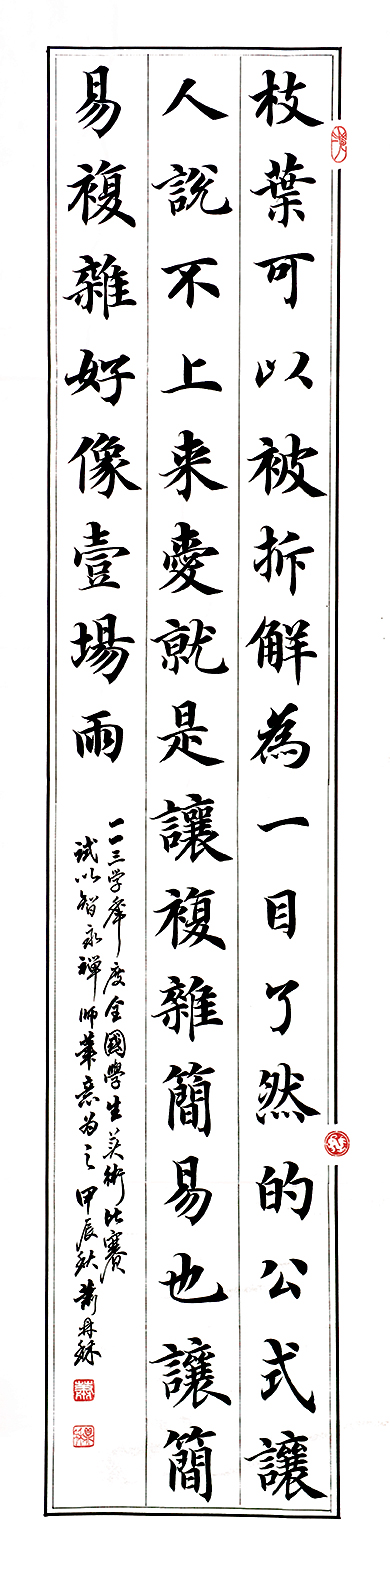 枝葉可以被拆解為一目了然的公式讓
人說不上来愛就是讓複雜簡易也讓簡
易複雜好像壹場雨
一一三学年度全國學生美術比賽
試以智永禅師筆意為之甲辰秋蕭